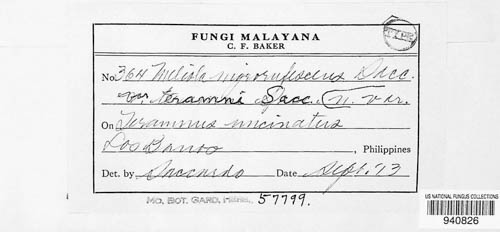 FUNGI MALAYANA
C. F. BAKER
No. 364 Meliola nigrorufescens Sacc.
var. teramni Sacc. n. var.
On Teramnus uncinatus
Los Banos, Philippines
Det. by Saccardo Date Sept. 13
MO. BOT. GARD. HERB. 57799.
US NATIONAL FUNGUS COLLECTIONS
940826